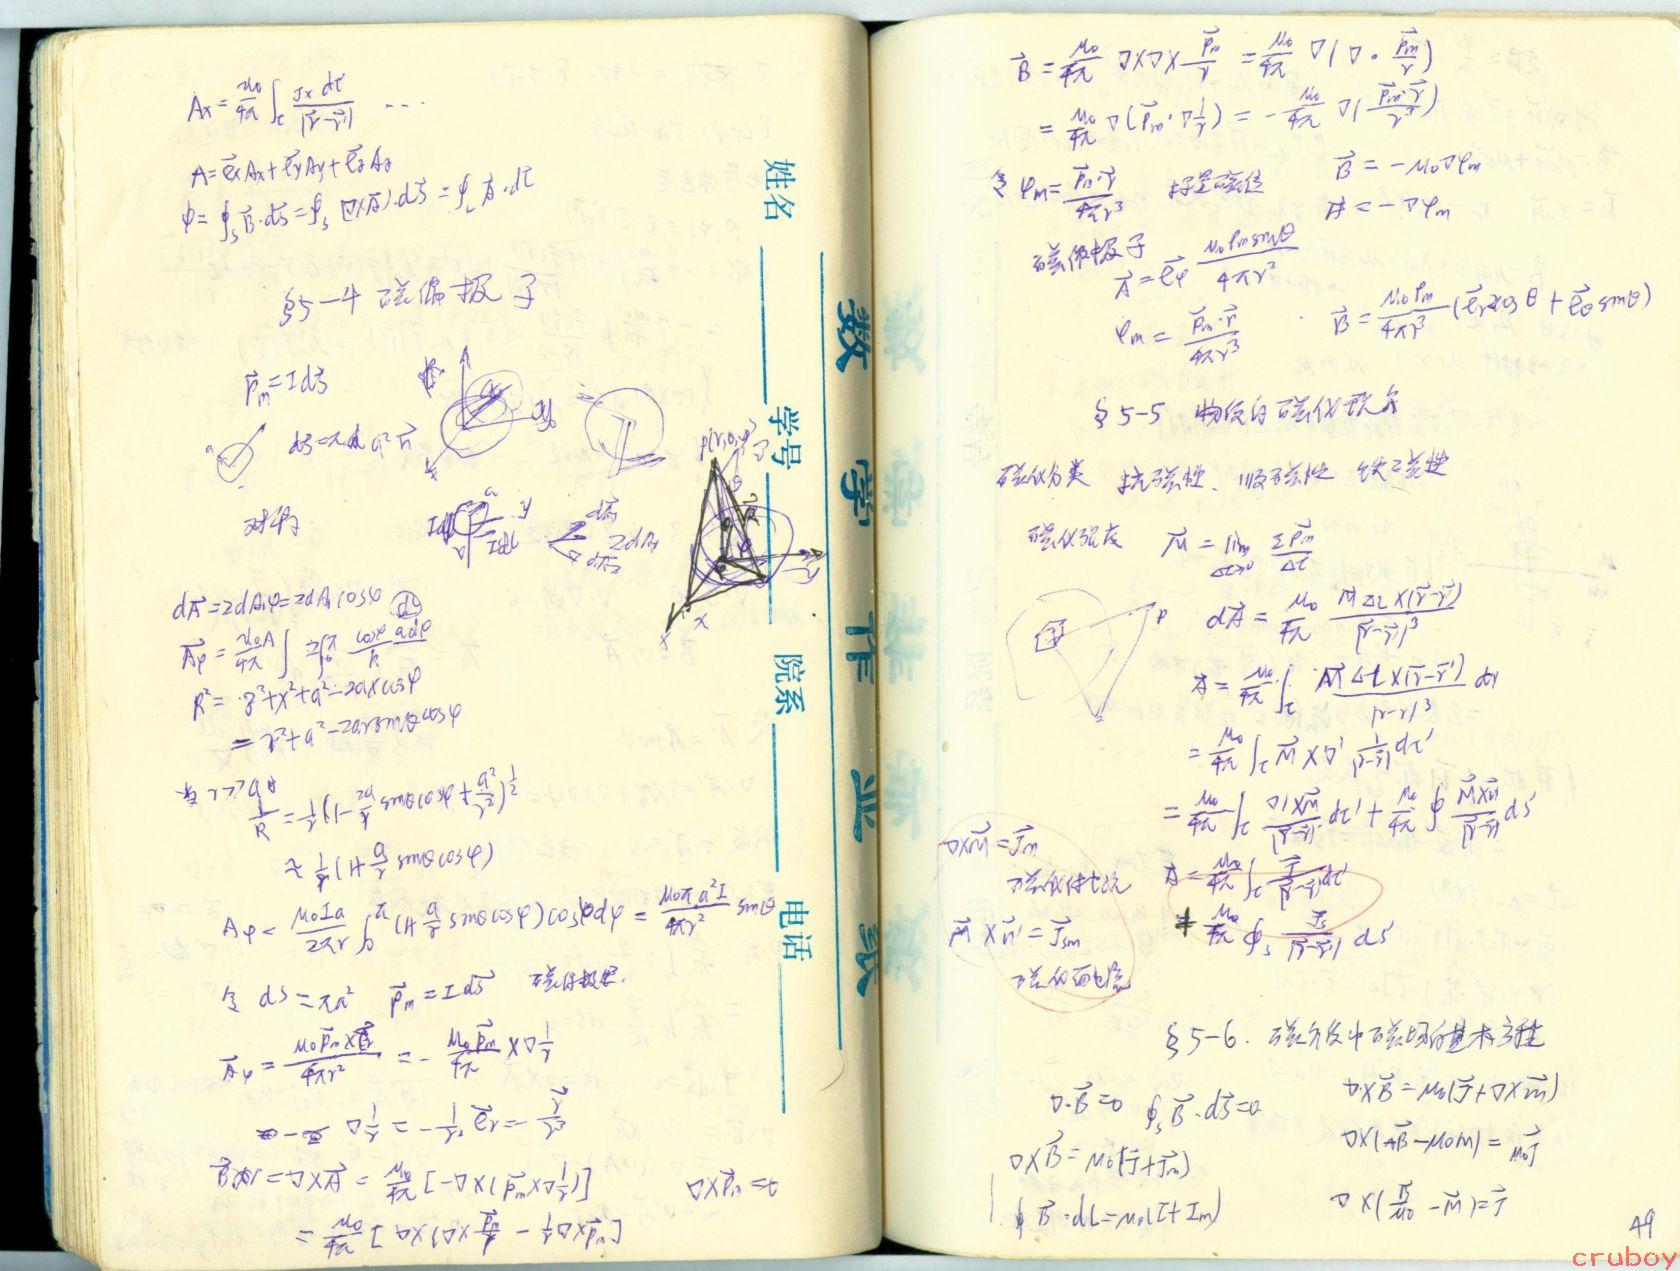 Ax = μ₀/4π ∫τ Jx dτ'/|r⃗-r⃗'| ...
A = e⃗xAx + e⃗yAy + e⃗zAz
φ = ∮s B⃗·dS⃗ = ∮s (∇×A⃗)·dS⃗ = ∮L A⃗·dl⃗
§5-4 磁偶极子
p⃗m = I dS⃗
a
dS = πa² n⃗
对称
a
y
Idl
Idl
dA⃗1
2dA1
dA⃗2
P(r,θ,φ)
x
x
dA⃗ = 2dA1φ = 2dA1cosφ
R² = z²+x²+a²-2axcosφ
= r²+a²-2arsinθcosφ
当 r>>a时
1/R = 1/r (1 - 2a/r sinθcosφ + a²/r²)^½
≈ 1/r (1+ a/r sinθcosφ)
μ₀Ia/2πr ∫₀^π (1+ a/r sinθcosφ) cosφ dφ = μ₀πa²I/4πr² sinθ
令 dS = πa² p⃗m = I dS⃗
= - μ₀p⃗m/4π × ∇ 1/r
∇ 1/r = - 1/r² e⃗r = - r⃗/r³
= ∇×A⃗ = μ₀/4π [-∇×(p⃗m×∇ 1/r)] ∇×p⃗m = 0
= μ₀/4π [∇×(∇× p⃗m/r - 1/r ∇×p⃗m]
姓名
学号
院系
电话
数学作业纸
B⃗ = μ₀/4π ∇×∇× p⃗m/r = μ₀/4π ∇(∇· p⃗m/r)
= μ₀/4π ∇(p⃗m·∇ 1/r) = - μ₀/4π ∇( p⃗m·r⃗/r³)
令 φm = p⃗m·r⃗/4πr³ 标量磁位 B⃗ = -μ₀∇φm
H = -∇φm
磁偶极子
A⃗ = e⃗φ μ₀pm sinθ/4πr²
φm = p⃗m·r⃗/4πr³ B⃗ = μ₀pm/4πr³ (e⃗r2cosθ + e⃗θ sinθ)
§5-5 物质的磁化现象
磁化分类 抗磁性、顺磁性 铁磁性
磁化强度 M⃗ = lim Δτ→0 Σp⃗m/Δτ
P
dA⃗ = μ₀/4π M⃗Δτ×(r⃗-r⃗')/|r⃗-r⃗'|³
= μ₀/4π ∫τ M⃗×∇' 1/|r⃗-r⃗'| dτ'
= μ₀/4π ∫τ ∇'×M⃗/|r⃗-r⃗'| dτ' + μ₀/4π ∮ M⃗×n⃗/|r⃗-r⃗'| dS'
∇×M⃗ = J⃗m
磁化体电流
M⃗×n⃗' = J⃗sm
磁化面电流
§5-6. 磁介质中磁场的基本方程
∇·B⃗ = 0 ∮s B⃗·dS⃗ = 0
∇×B⃗ = μ₀(J⃗+∇×M⃗)
∇×B⃗ = μ₀(J⃗+J⃗m)
∇×(B⃗-μ₀M) = μ₀J⃗
∮ B⃗·dL = μ₀(I+Im)
∇×(B⃗/μ₀ - M⃗) = J⃗
49
cruboy